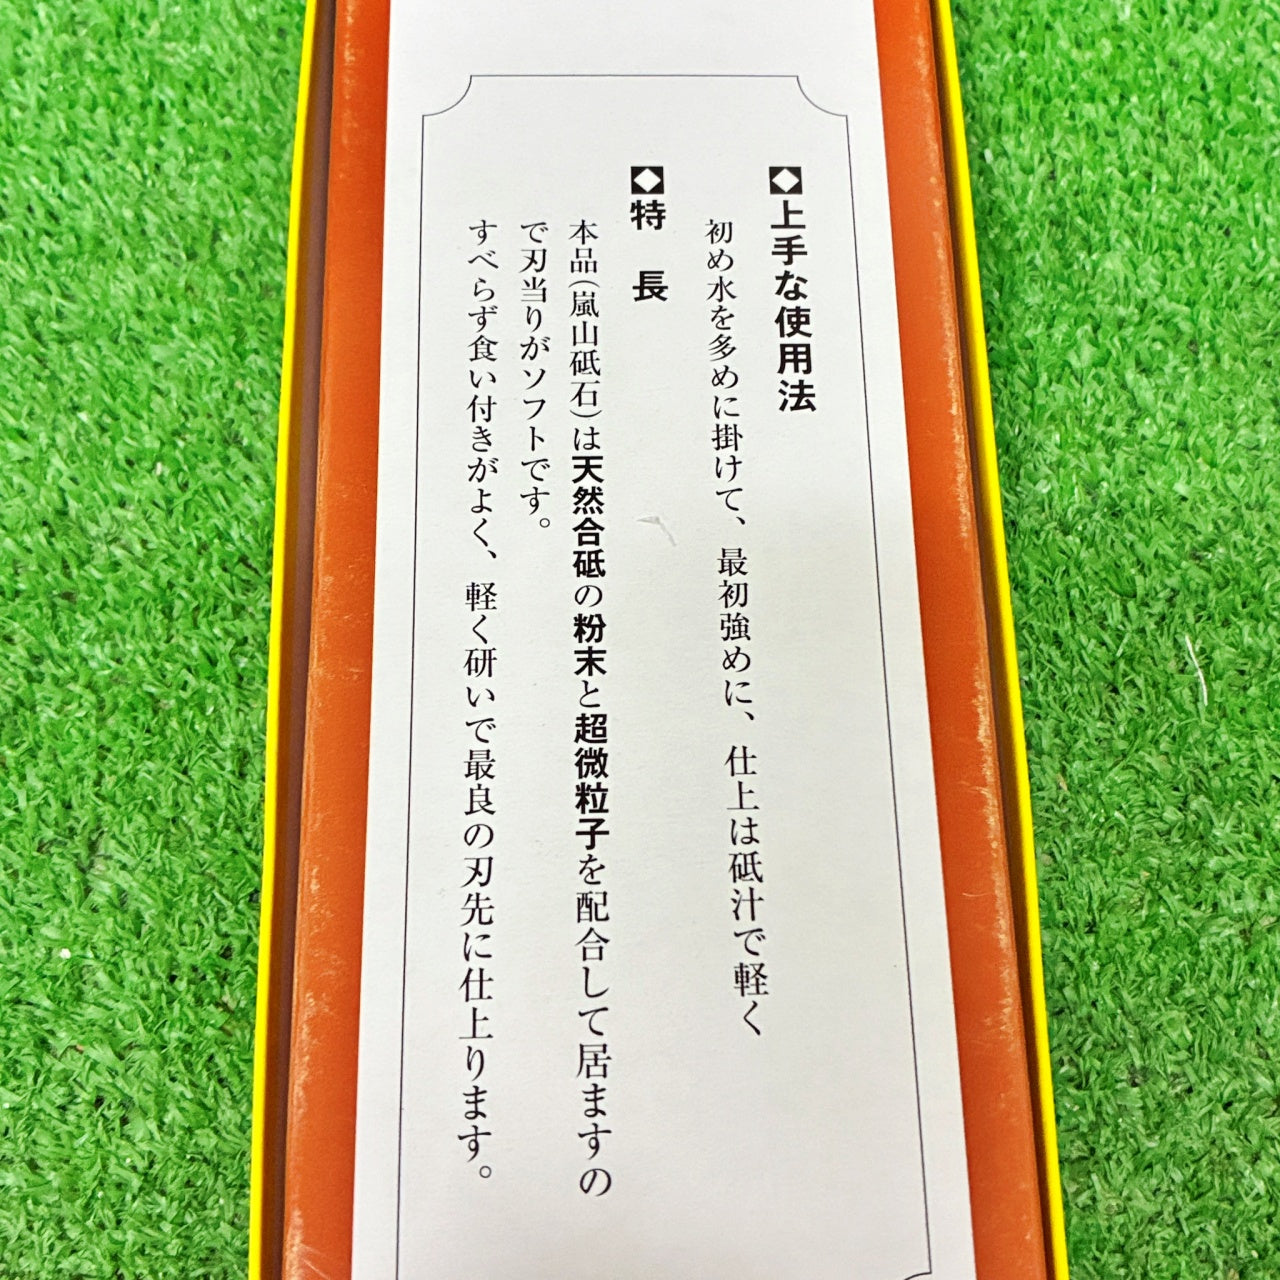 ◆上手な使用法
初め水を多めに掛けて、最初強めに、仕上は砥汁で軽く
◆特 長
本品(嵐山砥石)は天然合砥の粉末と超微粒子を配合して居ますの
で刃当りがソフトです。
すべらず食い付きがよく、軽く研いで最良の刃先に仕上ります。